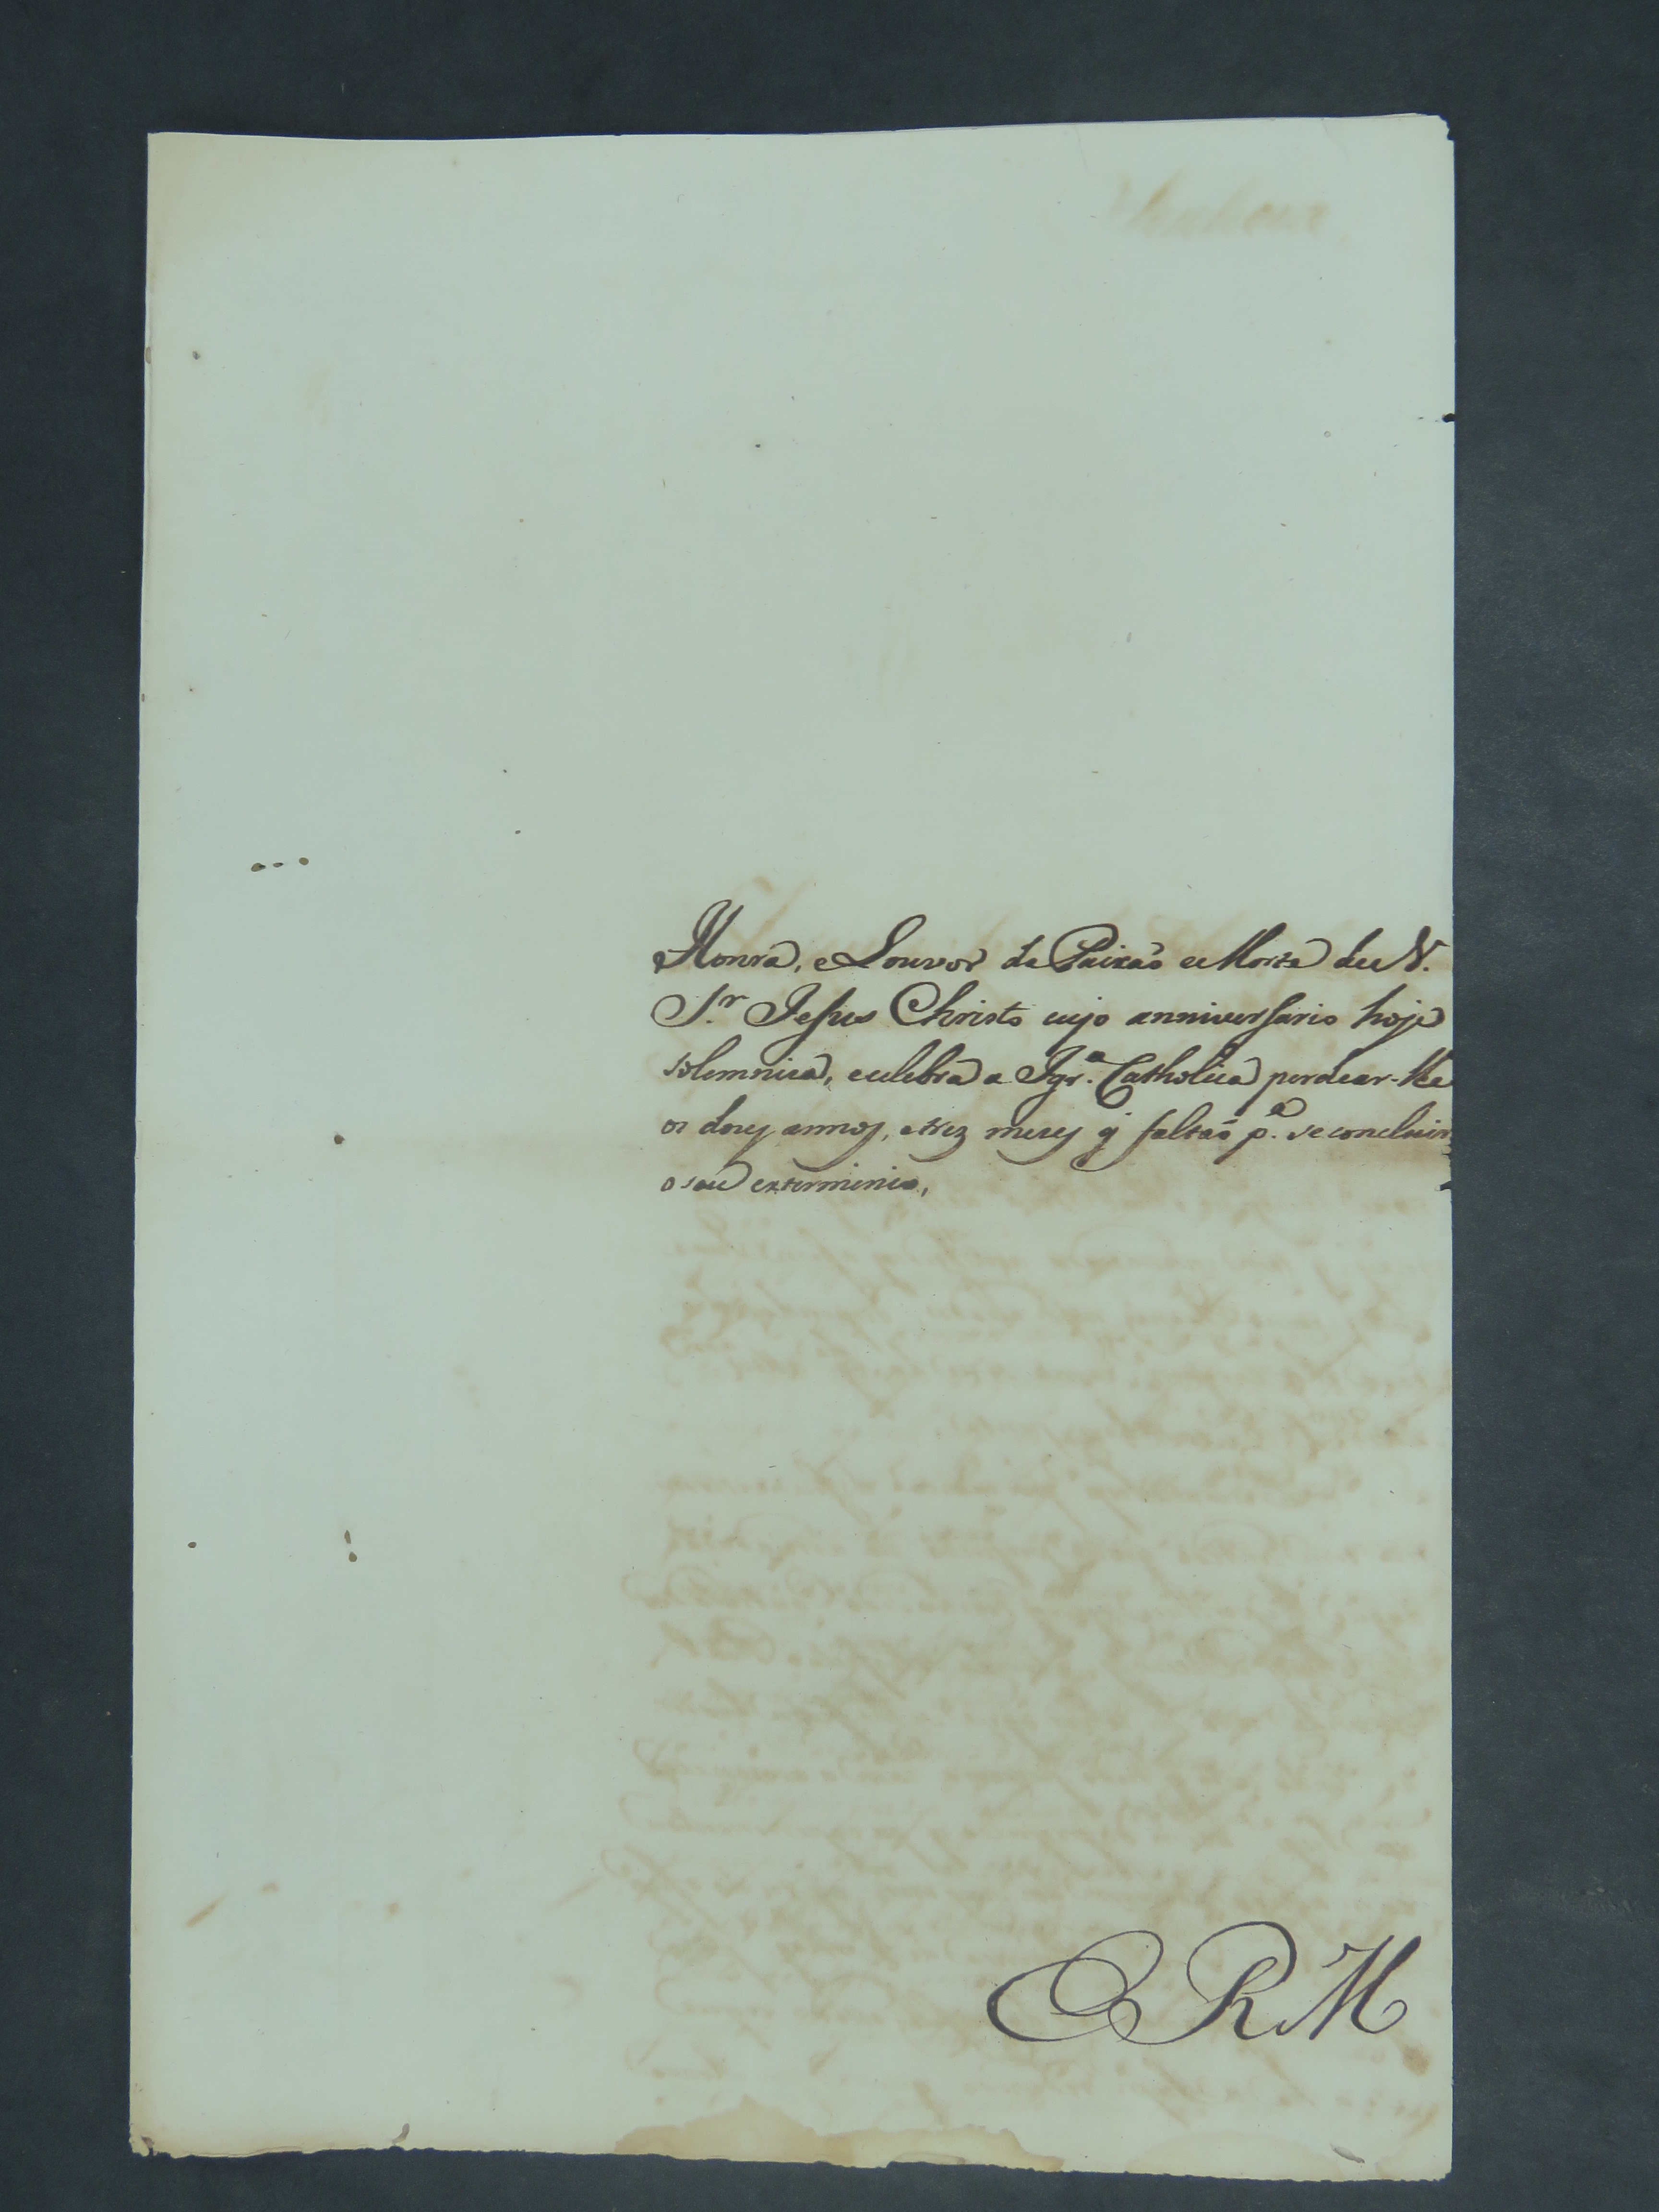 Honra, e Louvor da Paixaõ e Morte de N.
S.r Jesus Christo cujo anniversario hoje
solemnisa, e celebra a Igr.a Catholica perdoar-lhe
os dois annos, e trez mezes q̃ faltaõ p.a se concluir
o seu exterminio,
E R M